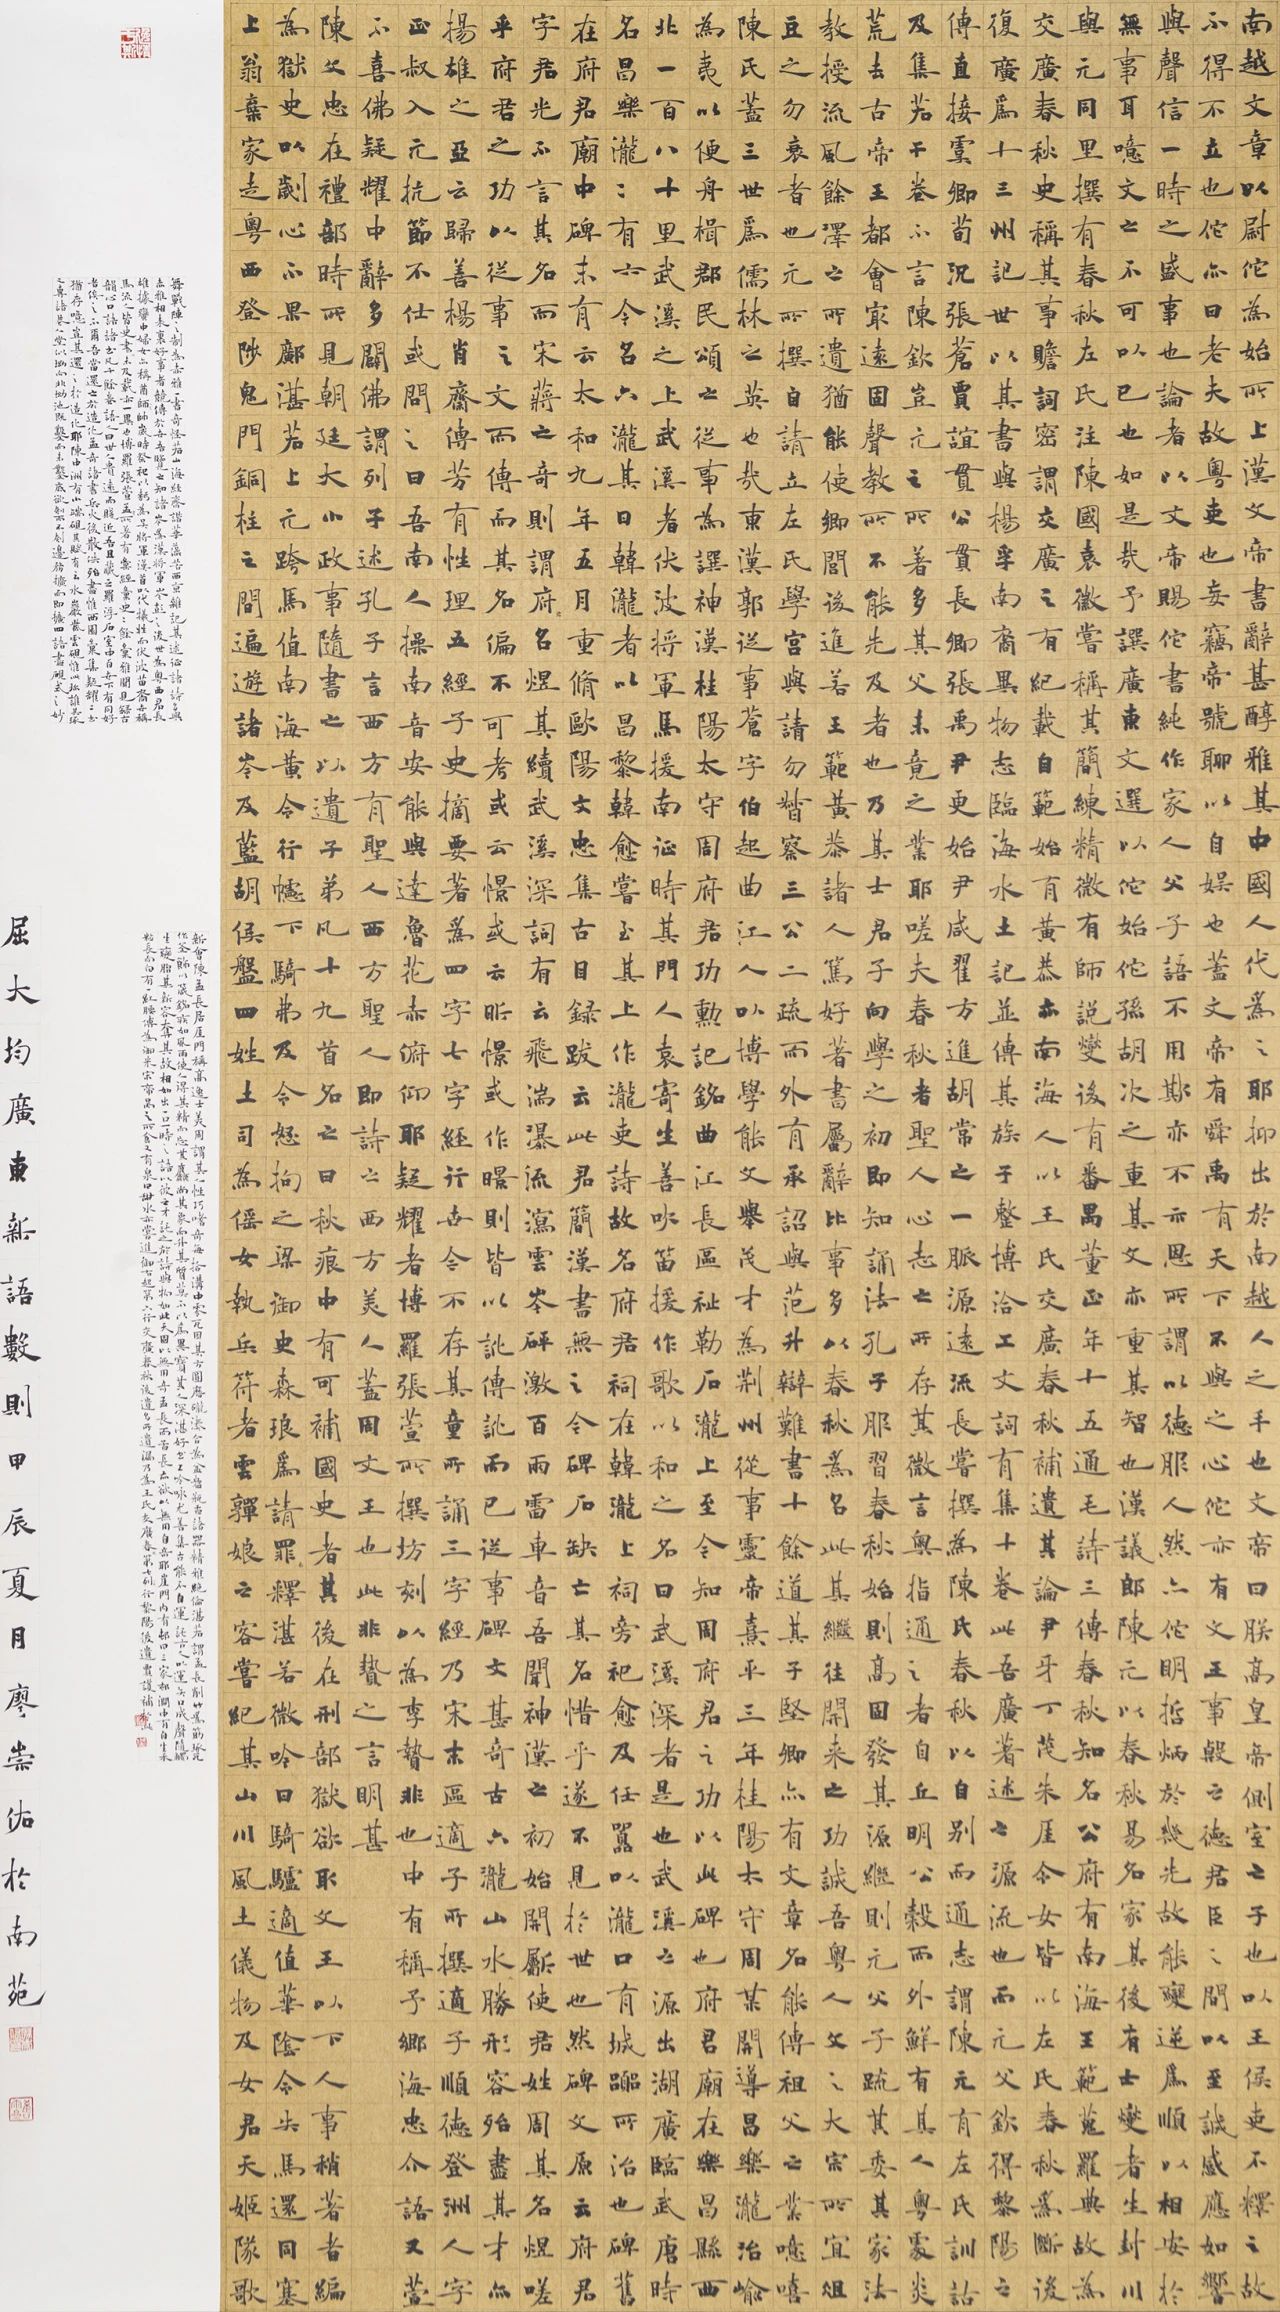 南越文章以尉佗為始所上漢文帝書辭甚醇雅其中國人代為之耶抑出於南越人之手也文帝曰朕高皇帝側室之子也以王侯吏不釋之故
不得不立也佗亦曰老夫故粵吏也妄竊帝號聊以自娛也蓋文帝有舜禹有天下不與之心佗亦有文王事殷之德君臣之間以至誠感應如響
與聲信一時之盛事也論者以文帝賜佗書純作家人父子語不用欺亦不示恩所謂以德服人然亦佗明哲炳於幾先故能變逆為順以相安於
無事耳噫文之不可以已也如是哉予譔廣東文選以佗始佗孫胡次之重其文亦重其智也漢議郎陳元以春秋易名家其後有士燮者生封川
與元同里撰有春秋左氏注陳國袁徽嘗稱其簡練精微有師說燮後有番禺董正年十五通毛詩三傳春秋知名公府有南海王範蒐羅典故為
交廣春秋史稱其事贍詞密謂交廣之有紀載自範始有黃恭亦南海人以王氏交廣春秋補遺其論尹牙丁茂朱厓令女皆以左氏春秋為斷後
復廣為十三州記世以其書與楊孚南裔異物志臨海水土記並傳其族子整博洽工文詞有集十卷此吾廣著述之源流也而元父欽得黎陽之
傳直接虞卿荀況張蒼賈誼貫公貫長卿張禹尹更始尹咸翟方進胡常之一脈源遠流長嘗撰為陳氏春秋以自別而通志謂陳元有左氏訓詁
及集若干卷不言陳欽豈元之所著多其父未竟之業耶嗟夫春秋者聖人心志之所存其微言奧指通之者自丘明公穀而外鮮有其人粵處炎
荒去古帝王都會最遠固聲教所不能先及者也乃其士君子向學之初即知誦法孔子服習春秋始則高固發其源繼則元父子疏其委其家法
教授流風餘澤之所遺猶能使鄉閭後進若王範黃恭諸人篤好著書屬辭比事多以春秋為名此其繼往開來之功誠吾粵人文之大宗所宜俎
豆之勿衰者也元所撰自請立左氏學宮與請勿督察三公二疏而外有承詔與范升辯難書十餘道其子堅卿亦有文章名能傳祖父之業噫嘻
陳氏蓋三世為儒林之英也哉東漢郭從事蒼字伯起曲江人以博學能文舉茂才為荊州從事靈帝熹平三年桂陽太守周某開導昌樂瀧治崳
為夷以便舟楫郡民頌之從事為譔神漢桂陽太守周府君功勳記銘曲江長區祉勒石瀧上至今知周府君之功以此碑也府君廟在樂昌縣西
北一百八十里武溪之上武溪者伏波將軍馬援南征時其門人袁寄生善吹笛援作歌以和之名曰武溪深者是也武溪之源出湖廣臨武唐時
名昌樂瀧瀧有六令名六瀧其曰韓瀧者以昌黎韓愈嘗至其上作瀧吏詩故名府君祠在韓瀧上祠旁祀愈及任囂以瀧口有城囂所治也碑舊
在府君廟中碑未有云太和九年五月重脩歐陽文忠集古目録跋云此君簡漢書無之令碑石缺亡其名惜乎遂不見於世也然碑文原云府君
字君光不言其名而宋蔣之奇則謂府名煜其續武溪深詞有云飛湍瀑流瀉雲岑砰激百雨雷車音吾聞神漢之初始開斸使君姓周其名煜嗟
乎府君之功以從事之文而傳而其名偏不可考或云憬或云昕憬或作暻則皆以訛傳訛而已從事碑文甚奇古六瀧山水勝形容殆盡其才亦
揚雄之亞云歸善楊肖齋傳芳有性理五經子史摘要著為四字七字經行世今不存其童所誦三字經乃宋末區適子所撰適子順德登洲人字
正叔入元抗節不仕或問之曰吾南人操南音安能與達魯花赤俯仰耶疑耀者博羅張萱所撰坊刻以為李贄非也中有稱予鄉海忠介語又萱
不喜佛疑耀中辭多闢佛謂列子述孔子言西方有聖人西方聖人即詩之西方美人蓋周文王也此非贄之言明甚
陳父忠在禮部時所見朝廷大小政事隨書之以遺子弟凡十九首名之曰秋痕中有可補國史者其後在刑部獄欲取文王以下人事稍著者編
為獄史以劌心不果鄺湛若上元跨馬值南海黃令行幰下騎弗及令怒拘之梁御史森琅為請罪釋湛若微吟曰騎驢適值華陰令失馬還同塞
上翁棄家走粵西登陟鬼門銅柱之間遍遊諸岑及藍胡侯盤四姓土司為傜女執兵符者雲嚲娘之客嘗紀其山川風土儀物及女君天姬隊歌
舞戰陣之制為赤雅一書奇怪若山海經齊諧華藻若西京雜記其述征諸詩多與
赤雅相表裏好事者競傳
新會陳孟長居厓門稱高逸士
屈大均廣東新語數則甲辰夏月廖崇佑於南苑